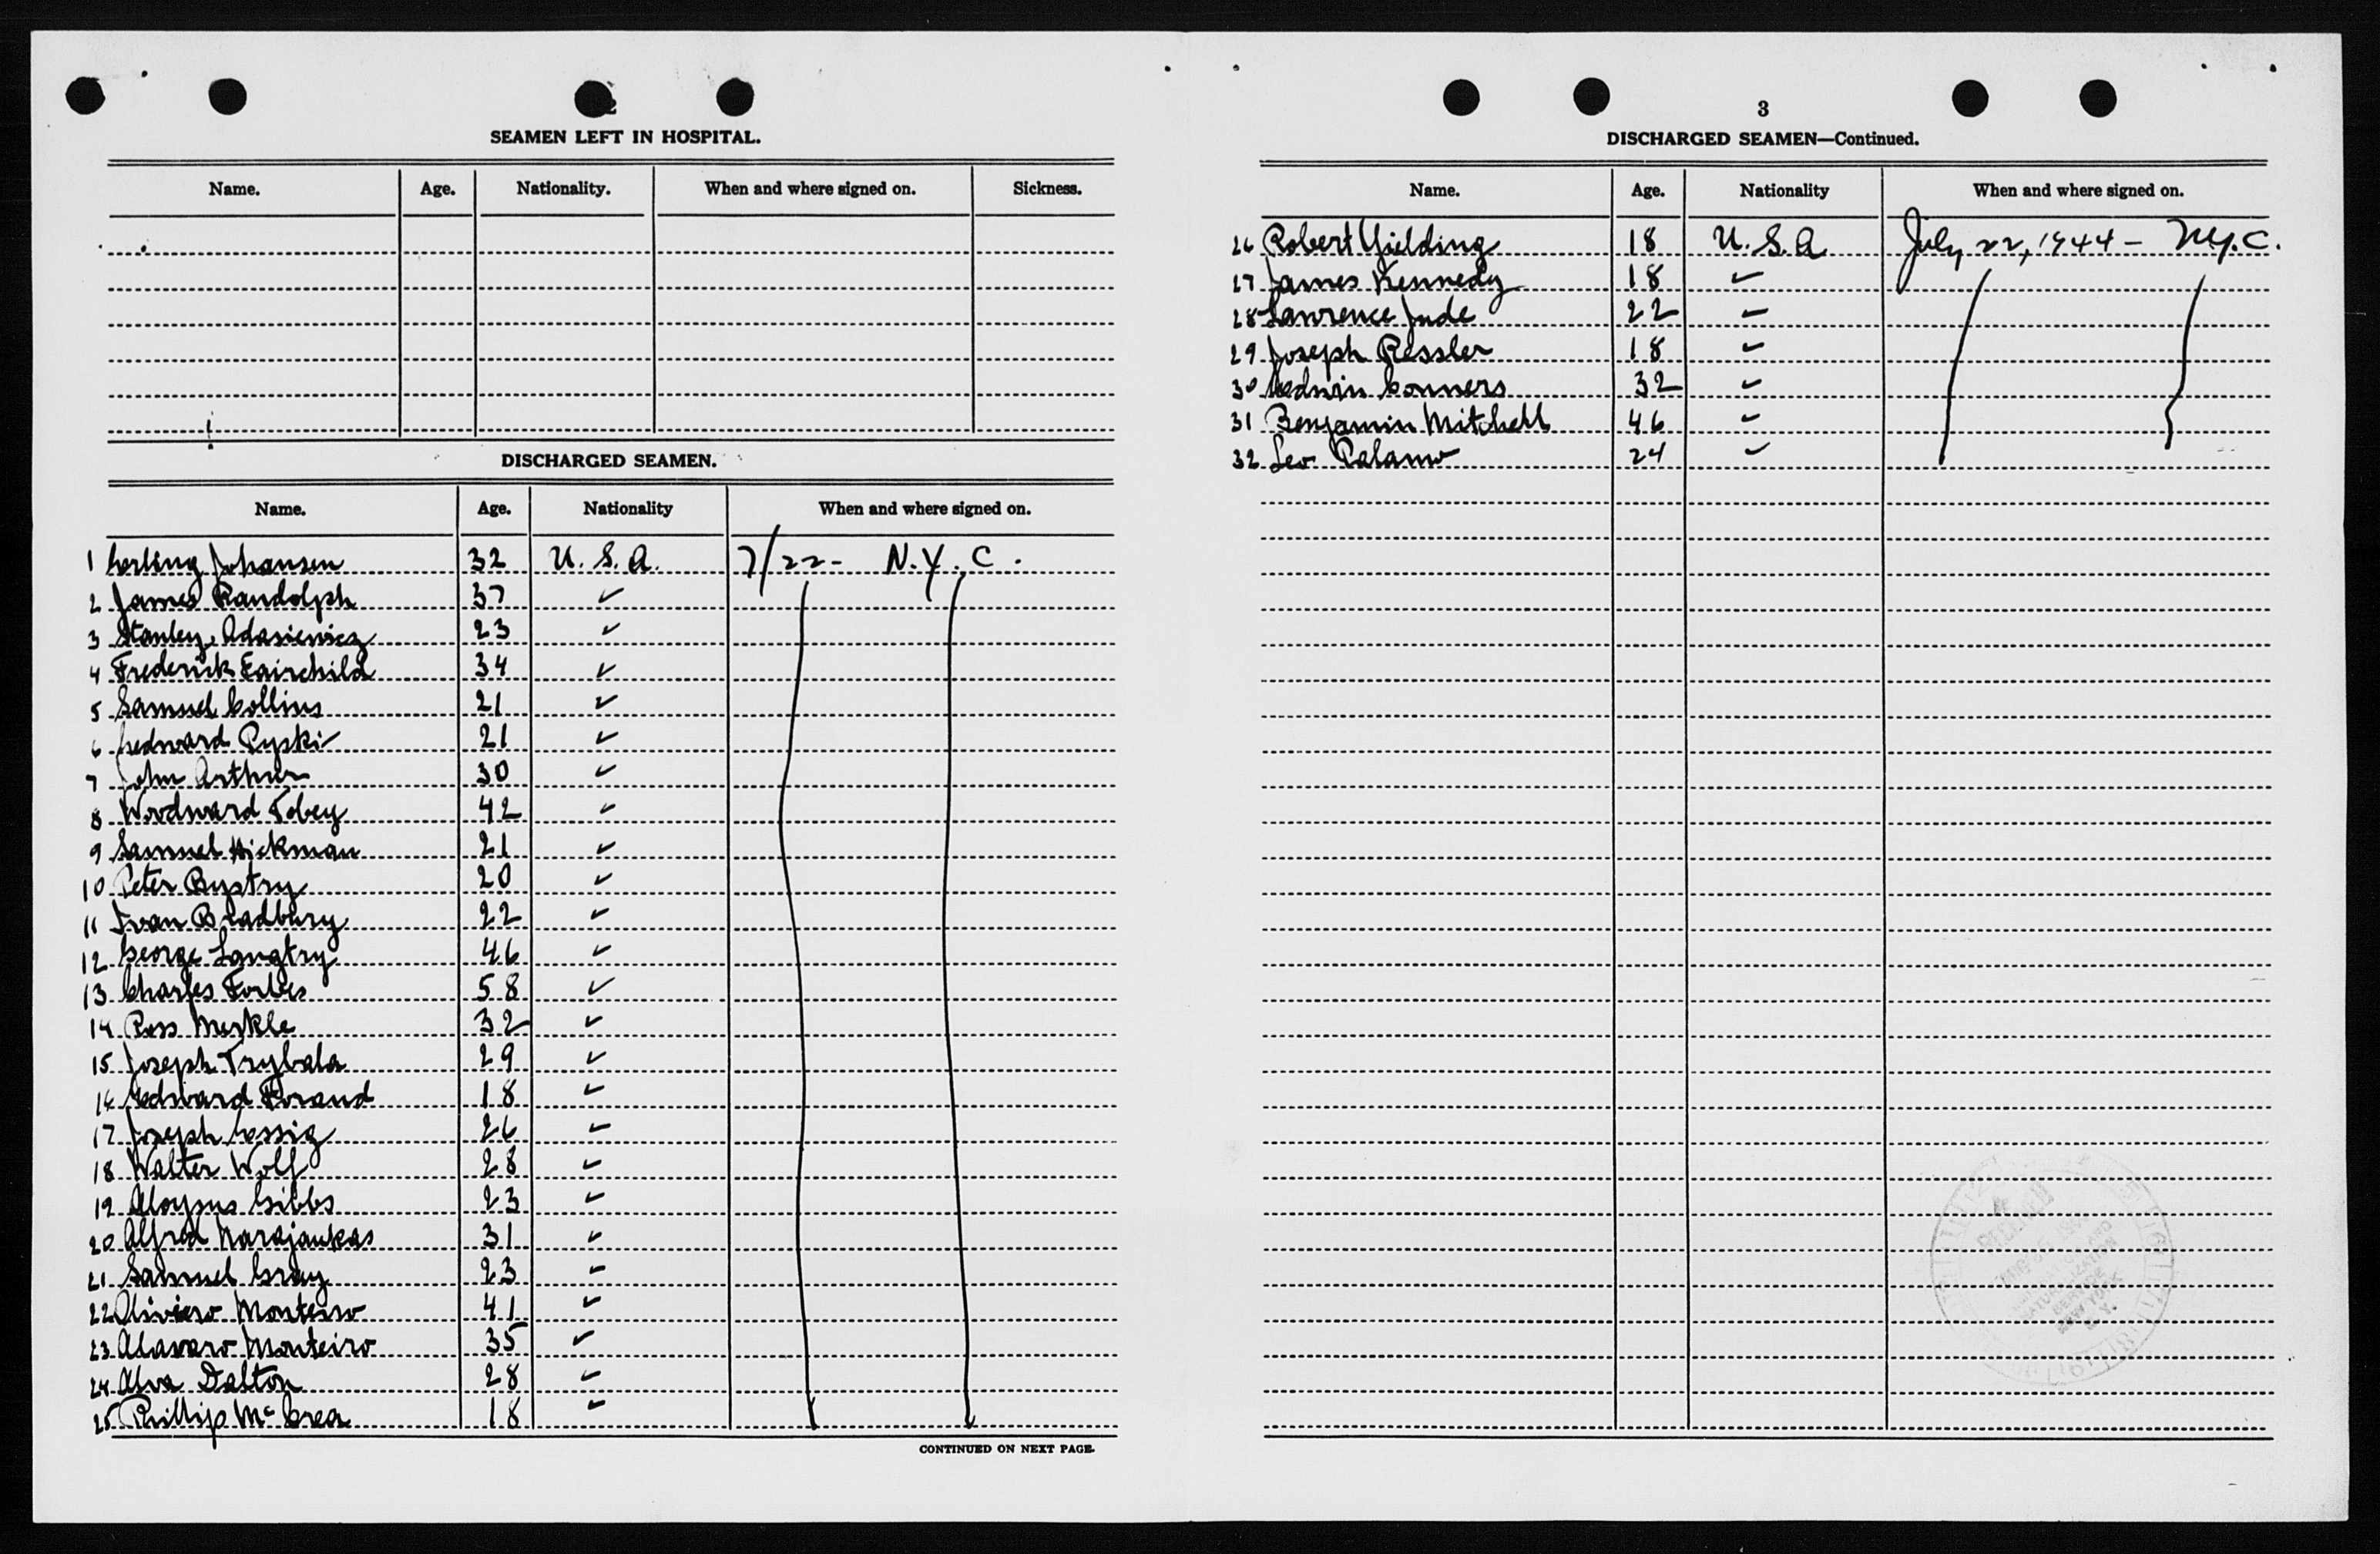 2
SEAMEN LEFT IN HOSPITAL.
Name. Age. Nationality. When and where signed on. Sickness.
DISCHARGED SEAMEN.
Name. Age. Nationality When and where signed on.
1 Erling Johansen 32 U.S.A. 7/22- N.Y.C.
2 James Randolph 37 ✓
3 Stanley Adasiewicz 23 ✓
4 Frederick Fairchild 34 ✓
5 Samuel Collins 21 ✓
6 Edward Pyski 21 ✓
7 John Arthur 30 ✓
8 Woodward Tobey 42 ✓
9 Samuel Hickman 21 ✓
10 Peter Bystry 20 ✓
11 Ivan Bradbury 22 ✓
12 George Langtry 46 ✓
13 Charles Forbes 58 ✓
14 Ross Merkle 32 ✓
15 Joseph Trybala 29 ✓
16 Edward Forand 18 ✓
17 Joseph Essig 26 ✓
18 Walter Wolf 28 ✓
19 Aloysus Gibbs 23 ✓
20 Alfred Narajaukas 31 ✓
21 Samuel Gray 23 ✓
22 Oliviero Monteiro 41 ✓
23 Alavaro Monteiro 35 ✓
24 Alva Dalton 28 ✓
25 Phillip McCrea 18 ✓
CONTINUED ON NEXT PAGE.
3
DISCHARGED SEAMEN—Continued.
Name. Age. Nationality When and where signed on.
26 Robert Yielding 18 U.S.A July 22, 1944 - N.Y.C.
27 James Kennedy 18 ✓
28 Lawrence Jude 22 ✓
29 Joseph Ressler 18 ✓
30 Edwin Conners 32 ✓
31 Benjamin Mitchell 46 ✓
32 Leo Palamo 24 ✓